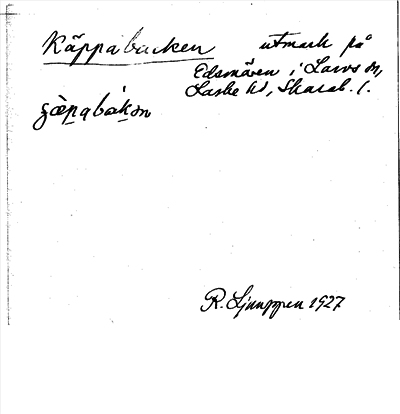 Käppabacken utmark på
Edsmären i Larvs sn,
Laske hd, Skarab. l.
R. Ljunggren 1927